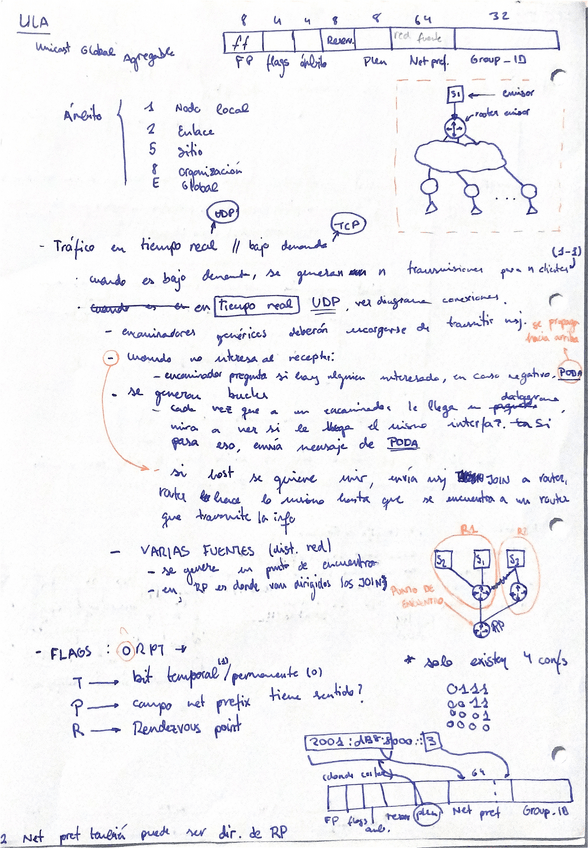 ULA
8 4 4 8 8 64 32
Unicast Global Agregable
ff Reserv. red fuente
FP flags ámbito Plen Net pref. Group_ID
S1 ← emisor
router emisor
Ámbito
1 Nodo local
2 Enlace
5 Sitio
8 organización
E Global
UDP TCP
- Tráfico en tiempo real // bajo demanda
(1-1)
· cuando es bajo demand, se generan n transmisiones para n clientes
· en tiempo real UDP, ver diagrama conexiones.
- encaminadores genéricos deberán encargarse de transmitir msj.
se propaga hacia arriba
- cuando no interesa al receptor:
- encaminador pregunta si hay alguien interesado, en caso negativo. PODA
- se generan bucles
- cada vez que a un encaminador le llega un datagrama,
mira a ver si le llega el mismo interfaz. Si
pasa eso, envía mensaje de PODA
- si host se quiere unir, envía msj JOIN a router,
router lo hace lo mismo hasta que se encuentra a un router
que transmite la info
- VARIAS FUENTES (dist. red)
- se genera un punto de encuentro
- en, RP es donde van dirigidos los JOINs
R1 R2
S2 S1 S2
PUNTO DE ENCUENTRO
RP
- FLAGS : 0RPT →
* solo existen 4 confs
T → bit temporal (1)/permanente (0)
P → campo net prefix tiene sentido?
R → Rendezvous point
0111
0011
0001
0000
2001:db8:8000::3
(donde cortar) 64
FP flags amb. reserv plen Net pref Group-ID
2 Net pref también puede ser dir. de RP